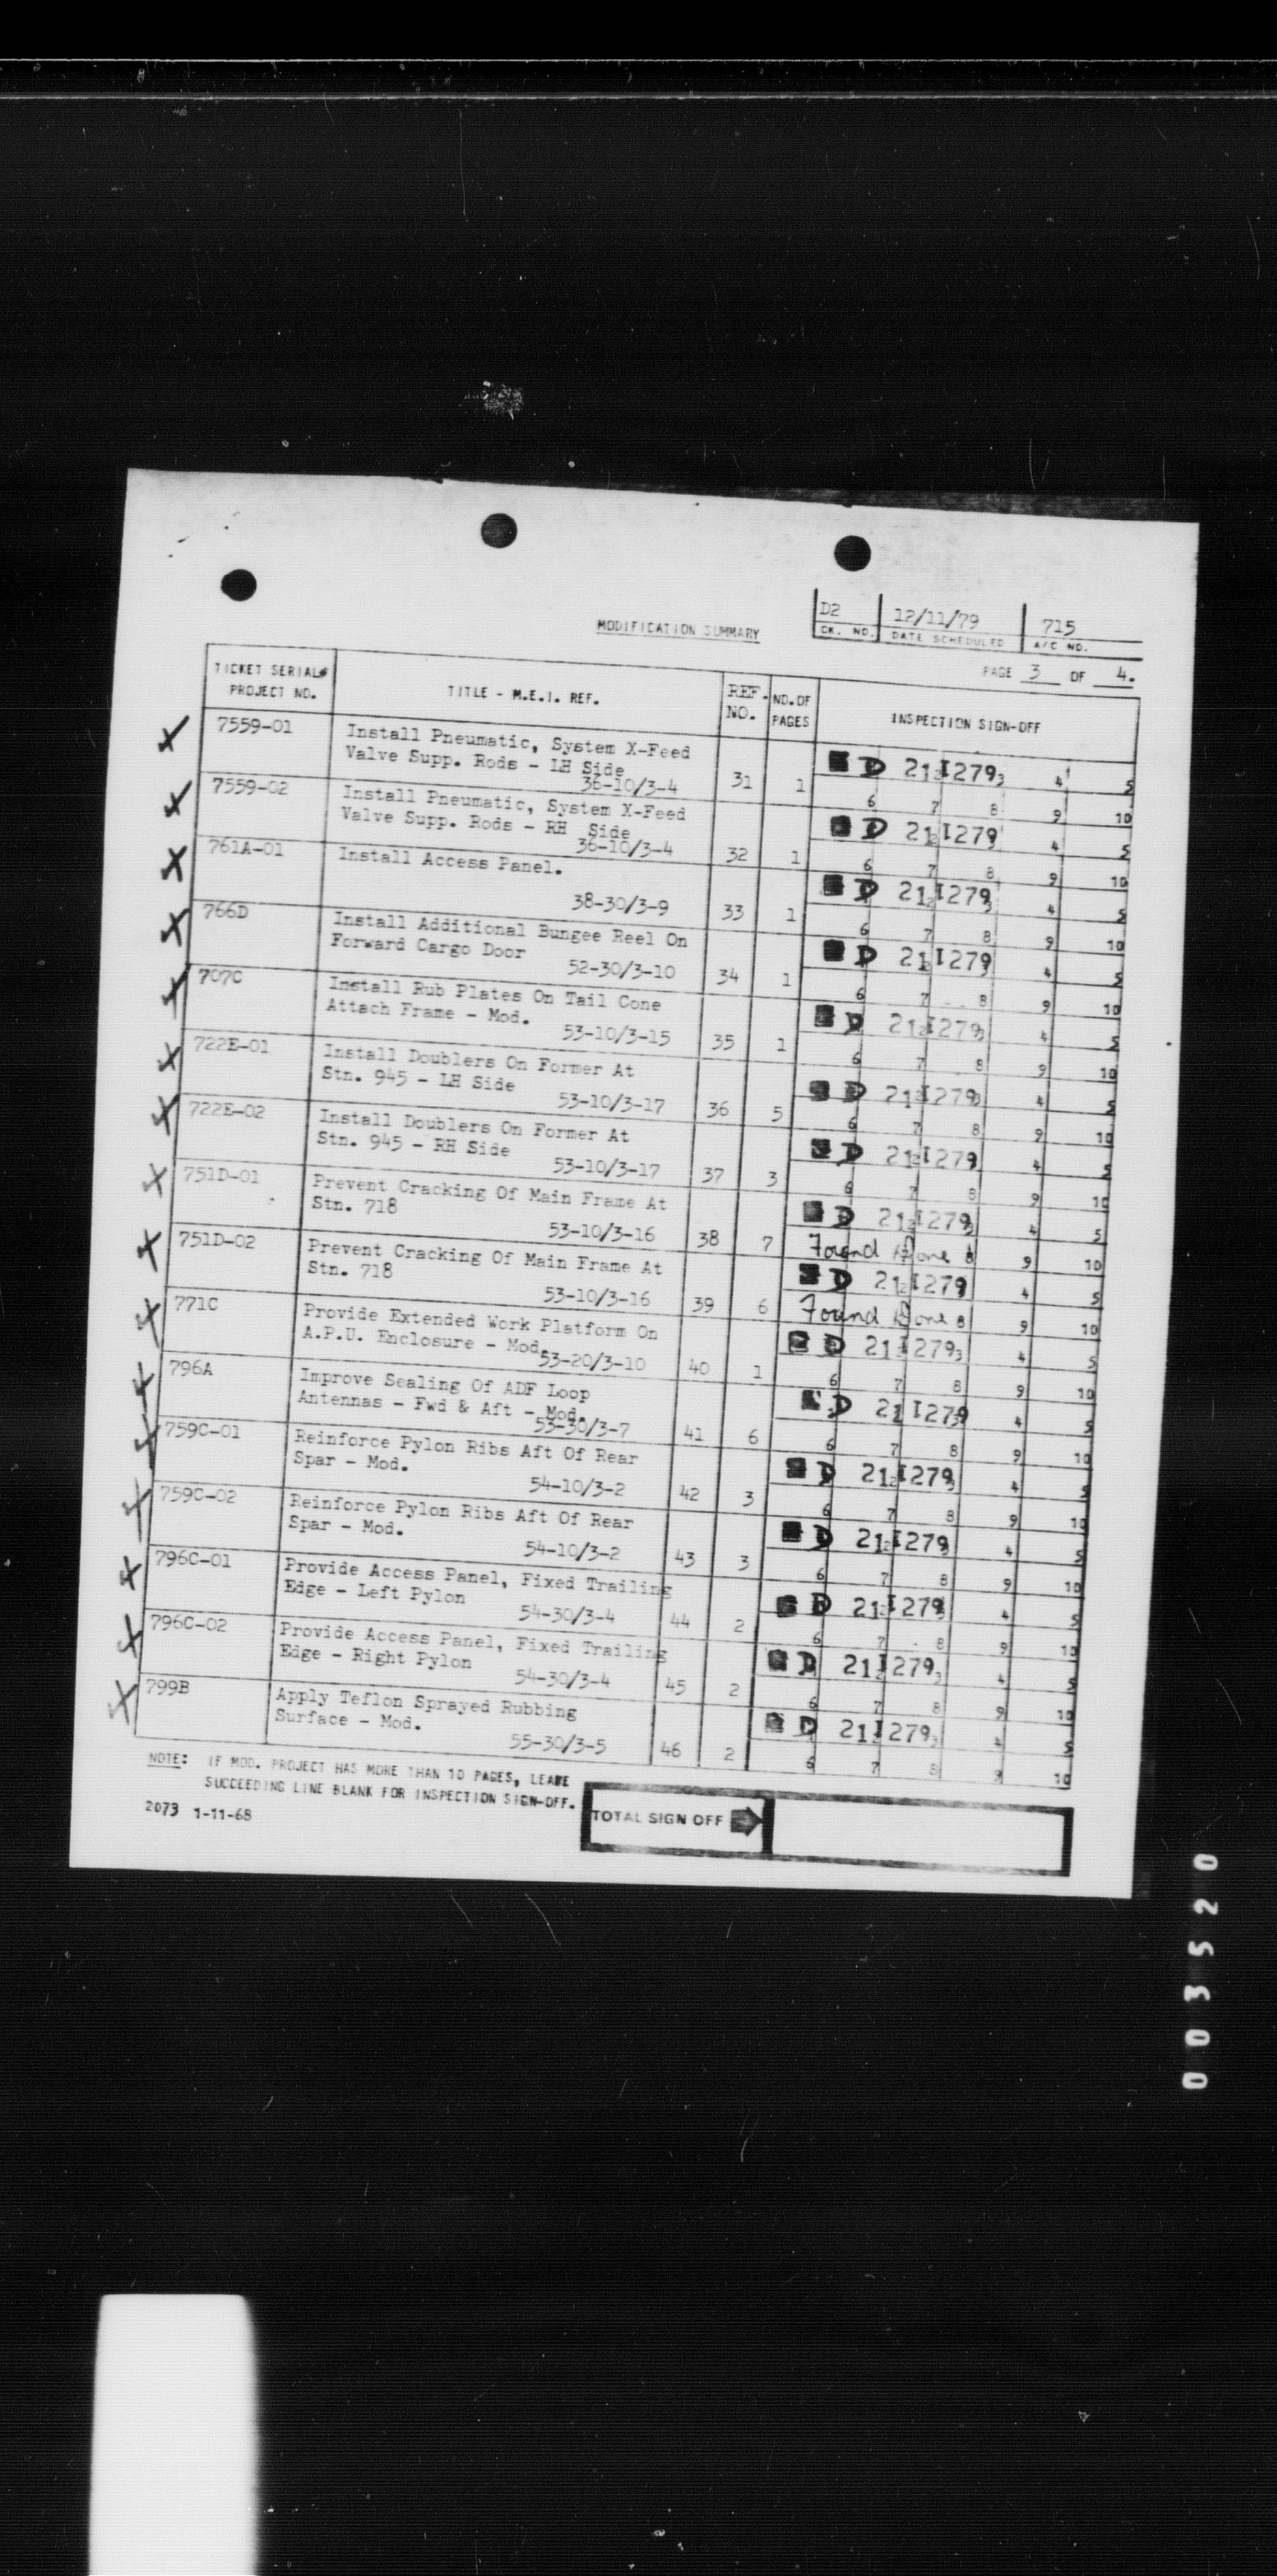 D2 12/11/79 715
CK. NO. DATE SCHEDULED A/C NO.
MODIFICATION SUMMARY
PAGE 3 OF 4.
TICKET SERIAL# PROJECT NO. TITLE - M.E.I. REF. REF. NO. NO. OF PAGES INSPECTION SIGN-OFF
7559-01 Install Pneumatic, System X-Feed
Valve Supp. Rods - LH Side
36-10/3-4 31 1 D 211279 4 5
6 7 8 9 10
7559-02 Install Pneumatic, System X-Feed
Valve Supp. Rods - RH Side
36-10/3-4 32 1 D 211279 4 5
6 7 8 9 10
761A-01 Install Access Panel.
38-30/3-9 33 1 D 211279 4 5
6 7 8 9 10
766D Install Additional Bungee Reel On
Forward Cargo Door
52-30/3-10 34 1 D 211279 4 5
6 7 8 9 10
707C Install Rub Plates On Tail Cone
Attach Frame - Mod.
53-10/3-15 35 1 D 211279 4 5
6 7 8 9 10
722E-01 Install Doublers On Former At
Stn. 945 - LH Side
53-10/3-17 36 5 D 211279 4 5
6 7 8 9 10
722E-02 Install Doublers On Former At
Stn. 945 - RH Side
53-10/3-17 37 3 D 211279 4 5
6 7 8 9 10
751D-01 Prevent Cracking Of Main Frame At
Stn. 718
53-10/3-16 38 7 D 211279 4 5
Found Done 8 9 10
751D-02 Prevent Cracking Of Main Frame At
Stn. 718
53-10/3-16 39 6 D 211279 4 5
Found Done 8 9 10
771C Provide Extended Work Platform On
A.P.U. Enclosure - Mod.
53-20/3-10 40 1 D 211279 4 5
6 7 8 9 10
796A Improve Sealing Of ADF Loop
Antennas - Fwd & Aft - Mod.
53-30/3-7 41 6 D 211279 4 5
6 7 8 9 10
759C-01 Reinforce Pylon Ribs Aft Of Rear
Spar - Mod.
54-10/3-2 42 3 D 211279 4 5
6 7 8 9 10
759C-02 Reinforce Pylon Ribs Aft Of Rear
Spar - Mod.
54-10/3-2 43 3 D 211279 4 5
6 7 8 9 10
796C-01 Provide Access Panel, Fixed Trailing
Edge - Left Pylon
54-30/3-4 44 2 D 211279 4 5
6 7 8 9 10
796C-02 Provide Access Panel, Fixed Trailing
Edge - Right Pylon
54-30/3-4 45 2 D 211279 4 5
6 7 8 9 10
799B Apply Teflon Sprayed Rubbing
Surface - Mod.
55-30/3-5 46 2 D 211279 4 5
6 7 8 9 10
NOTE: IF MOD. PROJECT HAS MORE THAN 10 PAGES, LEAVE
SUCCEEDING LINE BLANK FOR INSPECTION SIGN-OFF.
2073 1-11-68
TOTAL SIGN OFF
003520